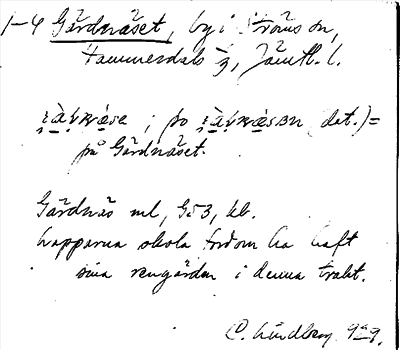 1-4 Gärdnäset, by i Ströms sn,
Hammerdals tg, Jämtl. l.
på Gärdnäset.
Gärdnäs ml, G53, kb.
Lapparna skola fordom ha haft
sina rengärden i denna trakt.
C. Lindberg